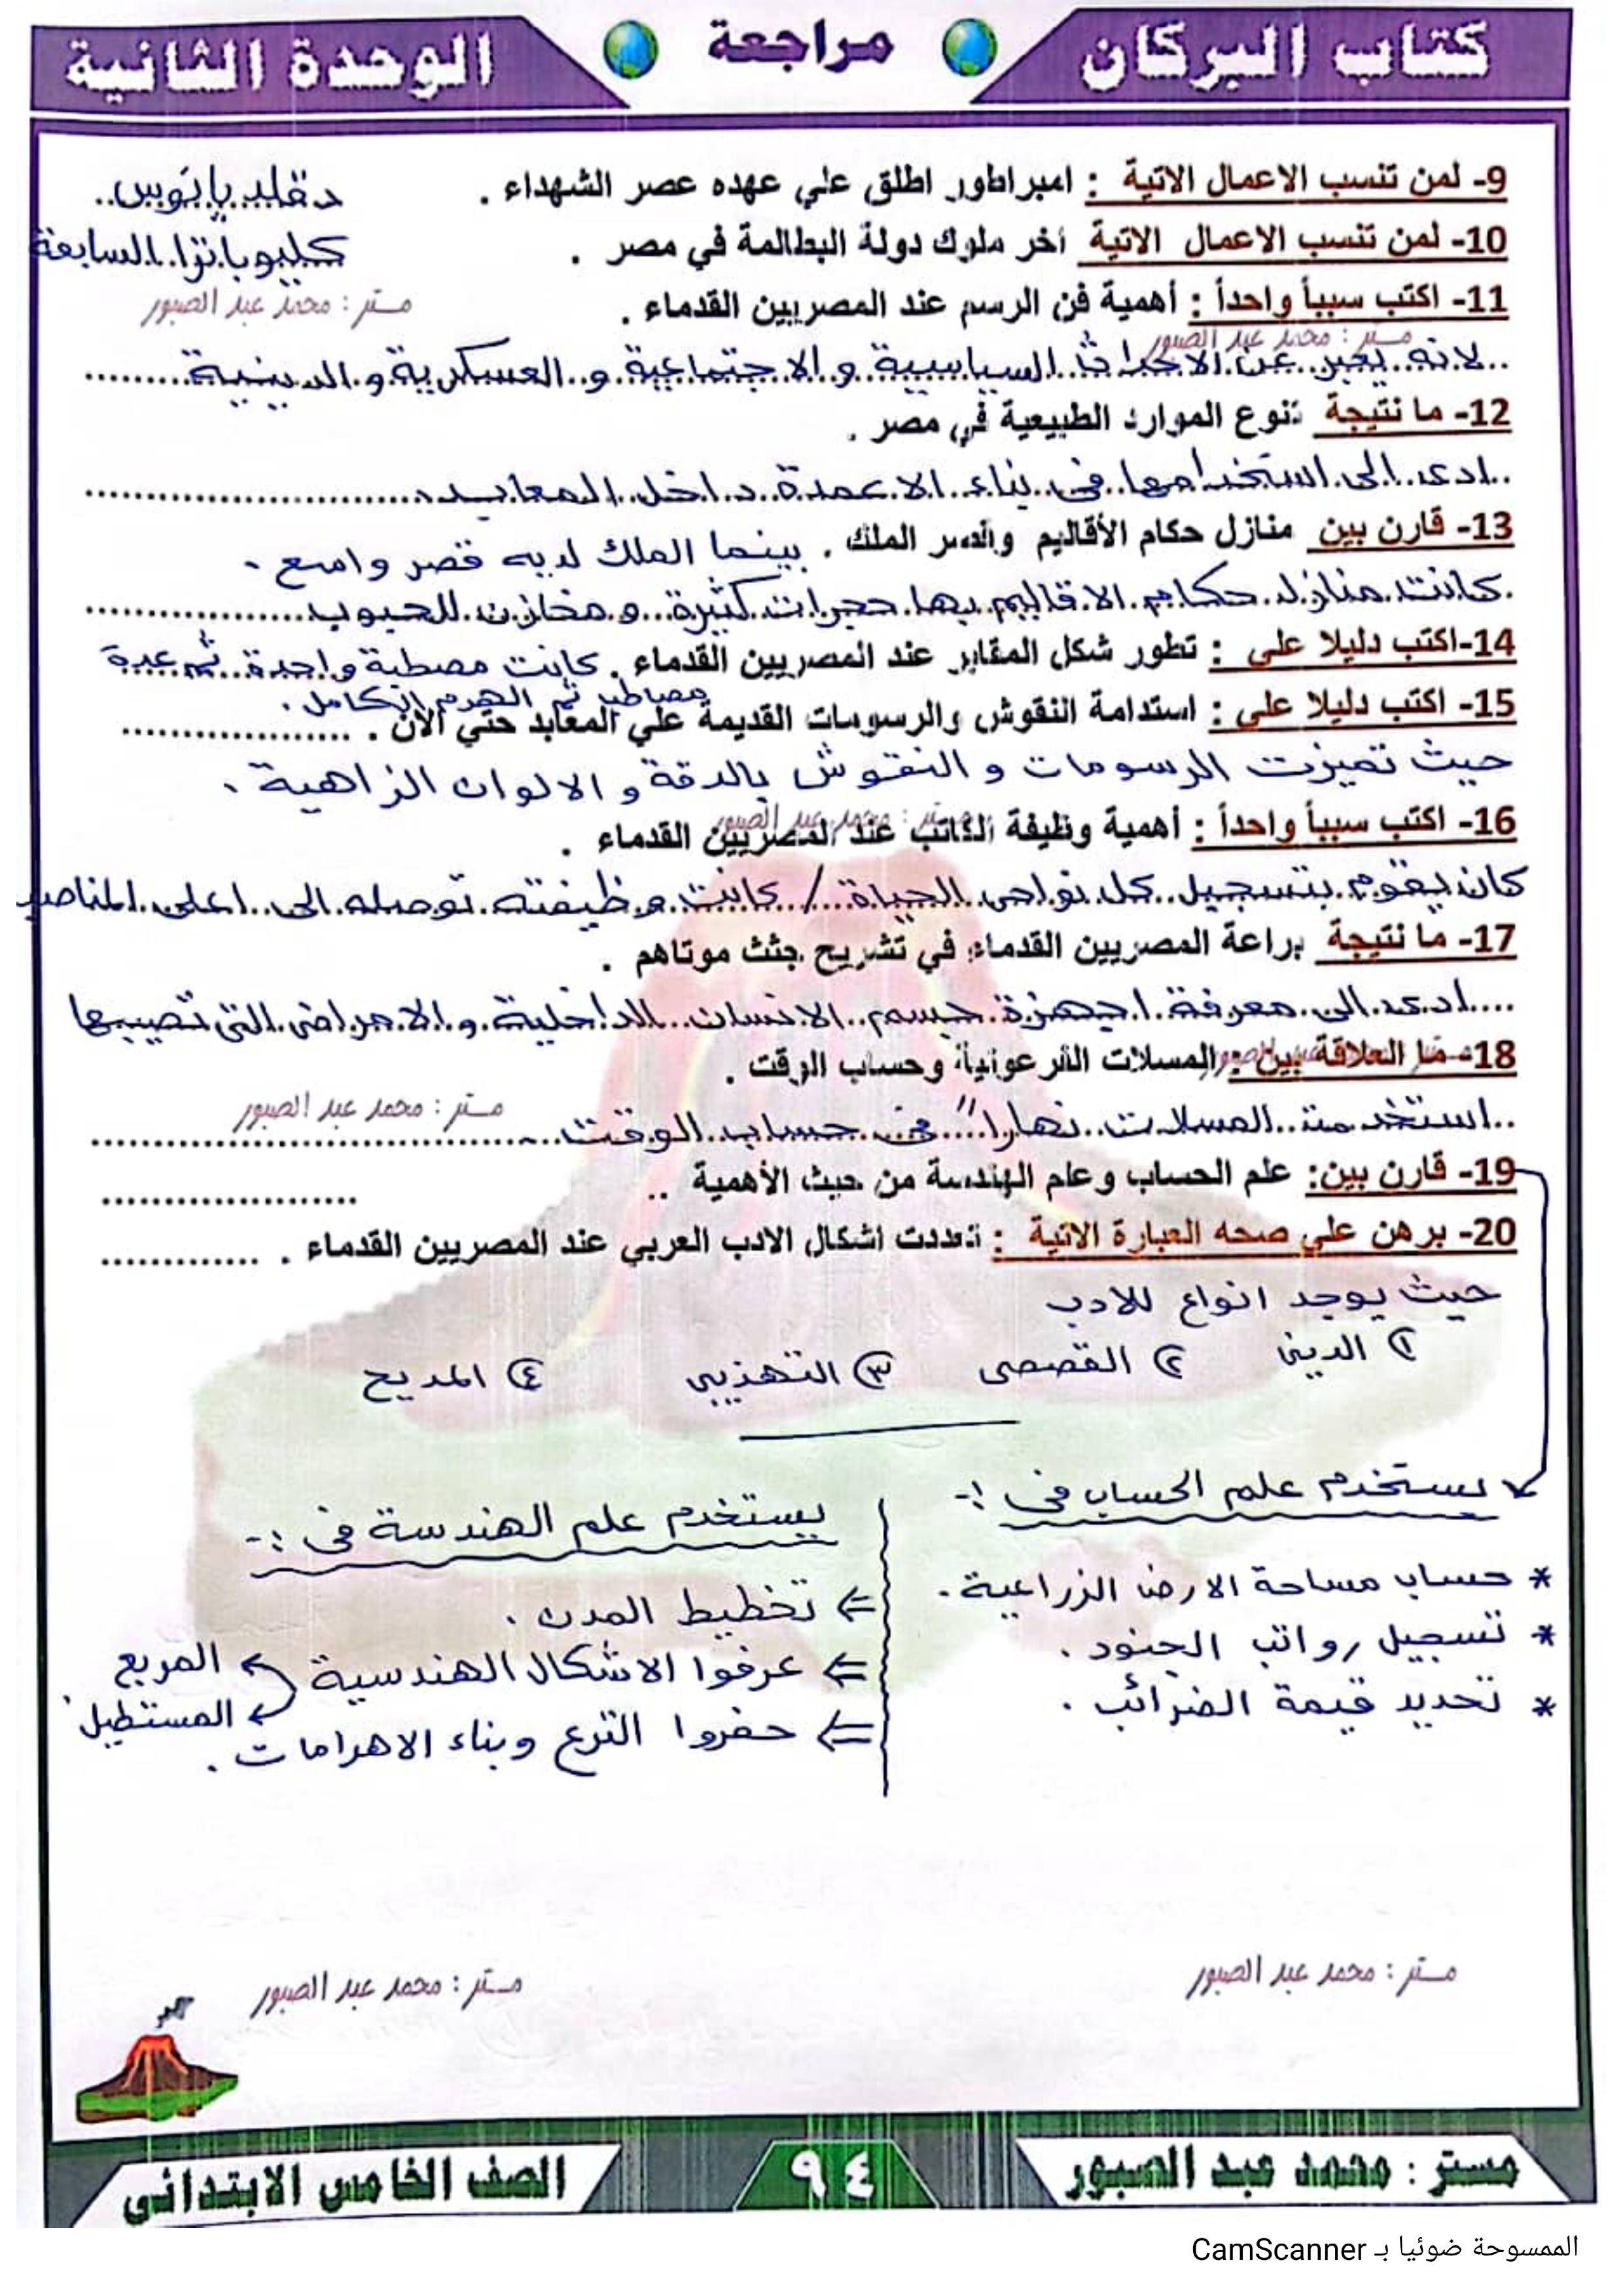 كتاب البركان
مراجعة
الوحدة الثانية
9- لمن تنسب الاعمال الاتية : امبراطور اطلق علي عهده عصر الشهداء . دقلديانوس
10- لمن تنسب الاعمال الاتية أخر ملوك دولة البطالمة في مصر . كليوباترا السابعة
11- اكتب سبباً واحداً : أهمية فن الرسم عند المصريين القدماء .
مستر : محمد عبد الصبور
مستر : محمد عبد الصبور
لانه يعبر عن الاحداث السياسية و الاجتماعية و العسكرية و الدينية
12- ما نتيجة تنوع الموارد الطبيعية في مصر .
ادى الى استخدامها فى بناء الاعمدة داخل المعابد
13- قارن بين منازل حكام الأقاليم وقصر الملك . بينما الملك لديه قصر واسع .
كانت منازل حكام الاقاليم بها حجرات كثيرة و مخازن للحبوب
14-اكتب دليلا على : تطور شكل المقابر عند المصريين القدماء . كانت مصطبة واحدة ثم عدة
مصاطب ثم الهرم الكامل .
15- اكتب دليلا على : استدامة النقوش والرسومات القديمة علي المعابد حتي الآن .
حيث تميزت الرسومات و النقوش بالدقة و الالوان الزاهية .
مستر : محمد عبد الصبور
16- اكتب سبباً واحداً : أهمية وظيفة الكاتب عند المصريين القدماء .
كان يقوم بتسجيل كل نواحى الحياة / كانت وظيفته توصله الى اعلى المناصب
17- ما نتيجة براعة المصريين القدماء في تشريح جثث موتاهم .
ادى الى معرفة اجهزة جسم الانسان الداخلية و الامراض التى تصيبها
18- ما العلاقة بين : المسلات الفرعونية وحساب الوقت .
مستر : محمد عبد الصبور
استخدمت المسلات نهاراً فى حساب الوقت
19- قارن بين: علم الحساب وعلم الهندسة من حيث الأهمية ..
20- برهن علي صحه العبارة الاتية : تعددت اشكال الادب العربي عند المصريين القدماء .
حيث يوجد انواع للادب
١ الدينى ٢ القصصى ٣ التهذيبى ٤ المديح
يستخدم علم الحساب فى :-
* حساب مساحة الارض الزراعية .
* تسجيل رواتب الجنود .
* تحديد قيمة الضرائب .
يستخدم علم الهندسة فى :-
⇐ تخطيط المدن .
⇐ عرفوا الاشكال الهندسية المربع
المستطيل
⇐ حفروا الترع وبناء الاهرامات .
مستر : محمد عبد الصبور
مستر : محمد عبد الصبور
مستر : محمد عبد الصبور
٩٤
الصف الخامس الابتدائي
الممسوحة ضوئيا بـ CamScanner